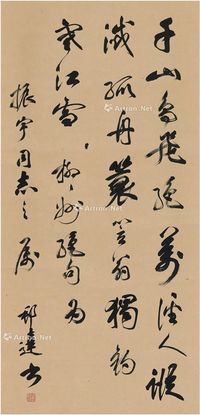 千山鳥飛絕萬徑人蹤
滅孤舟蓑笠翁獨釣
寒江雪 柳〻州絕句 为
振宇同志之属
Artron.Net
Artron.Net
Artron.Net